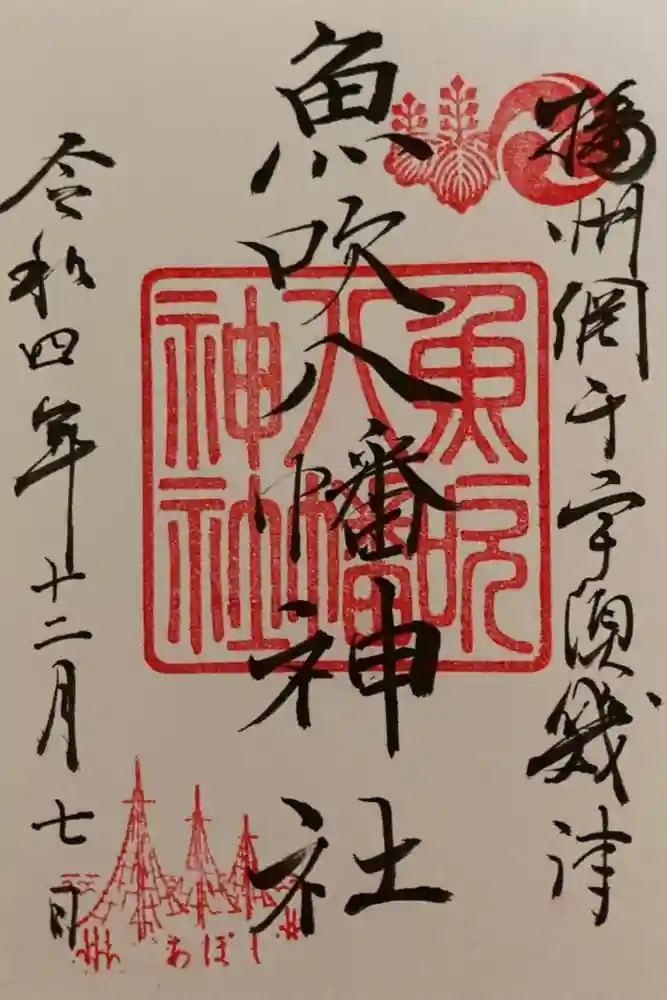 播州網干宇須幾津
魚吹八幡神社
令和四年十二月七日
魚吹
八幡
神社
あぼし